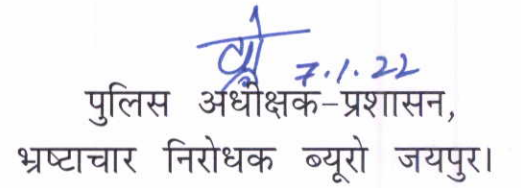 7.1.22
पुलिस अधीक्षक-प्रशासन,
भ्रष्टाचार निरोधक ब्यूरो जयपुर।